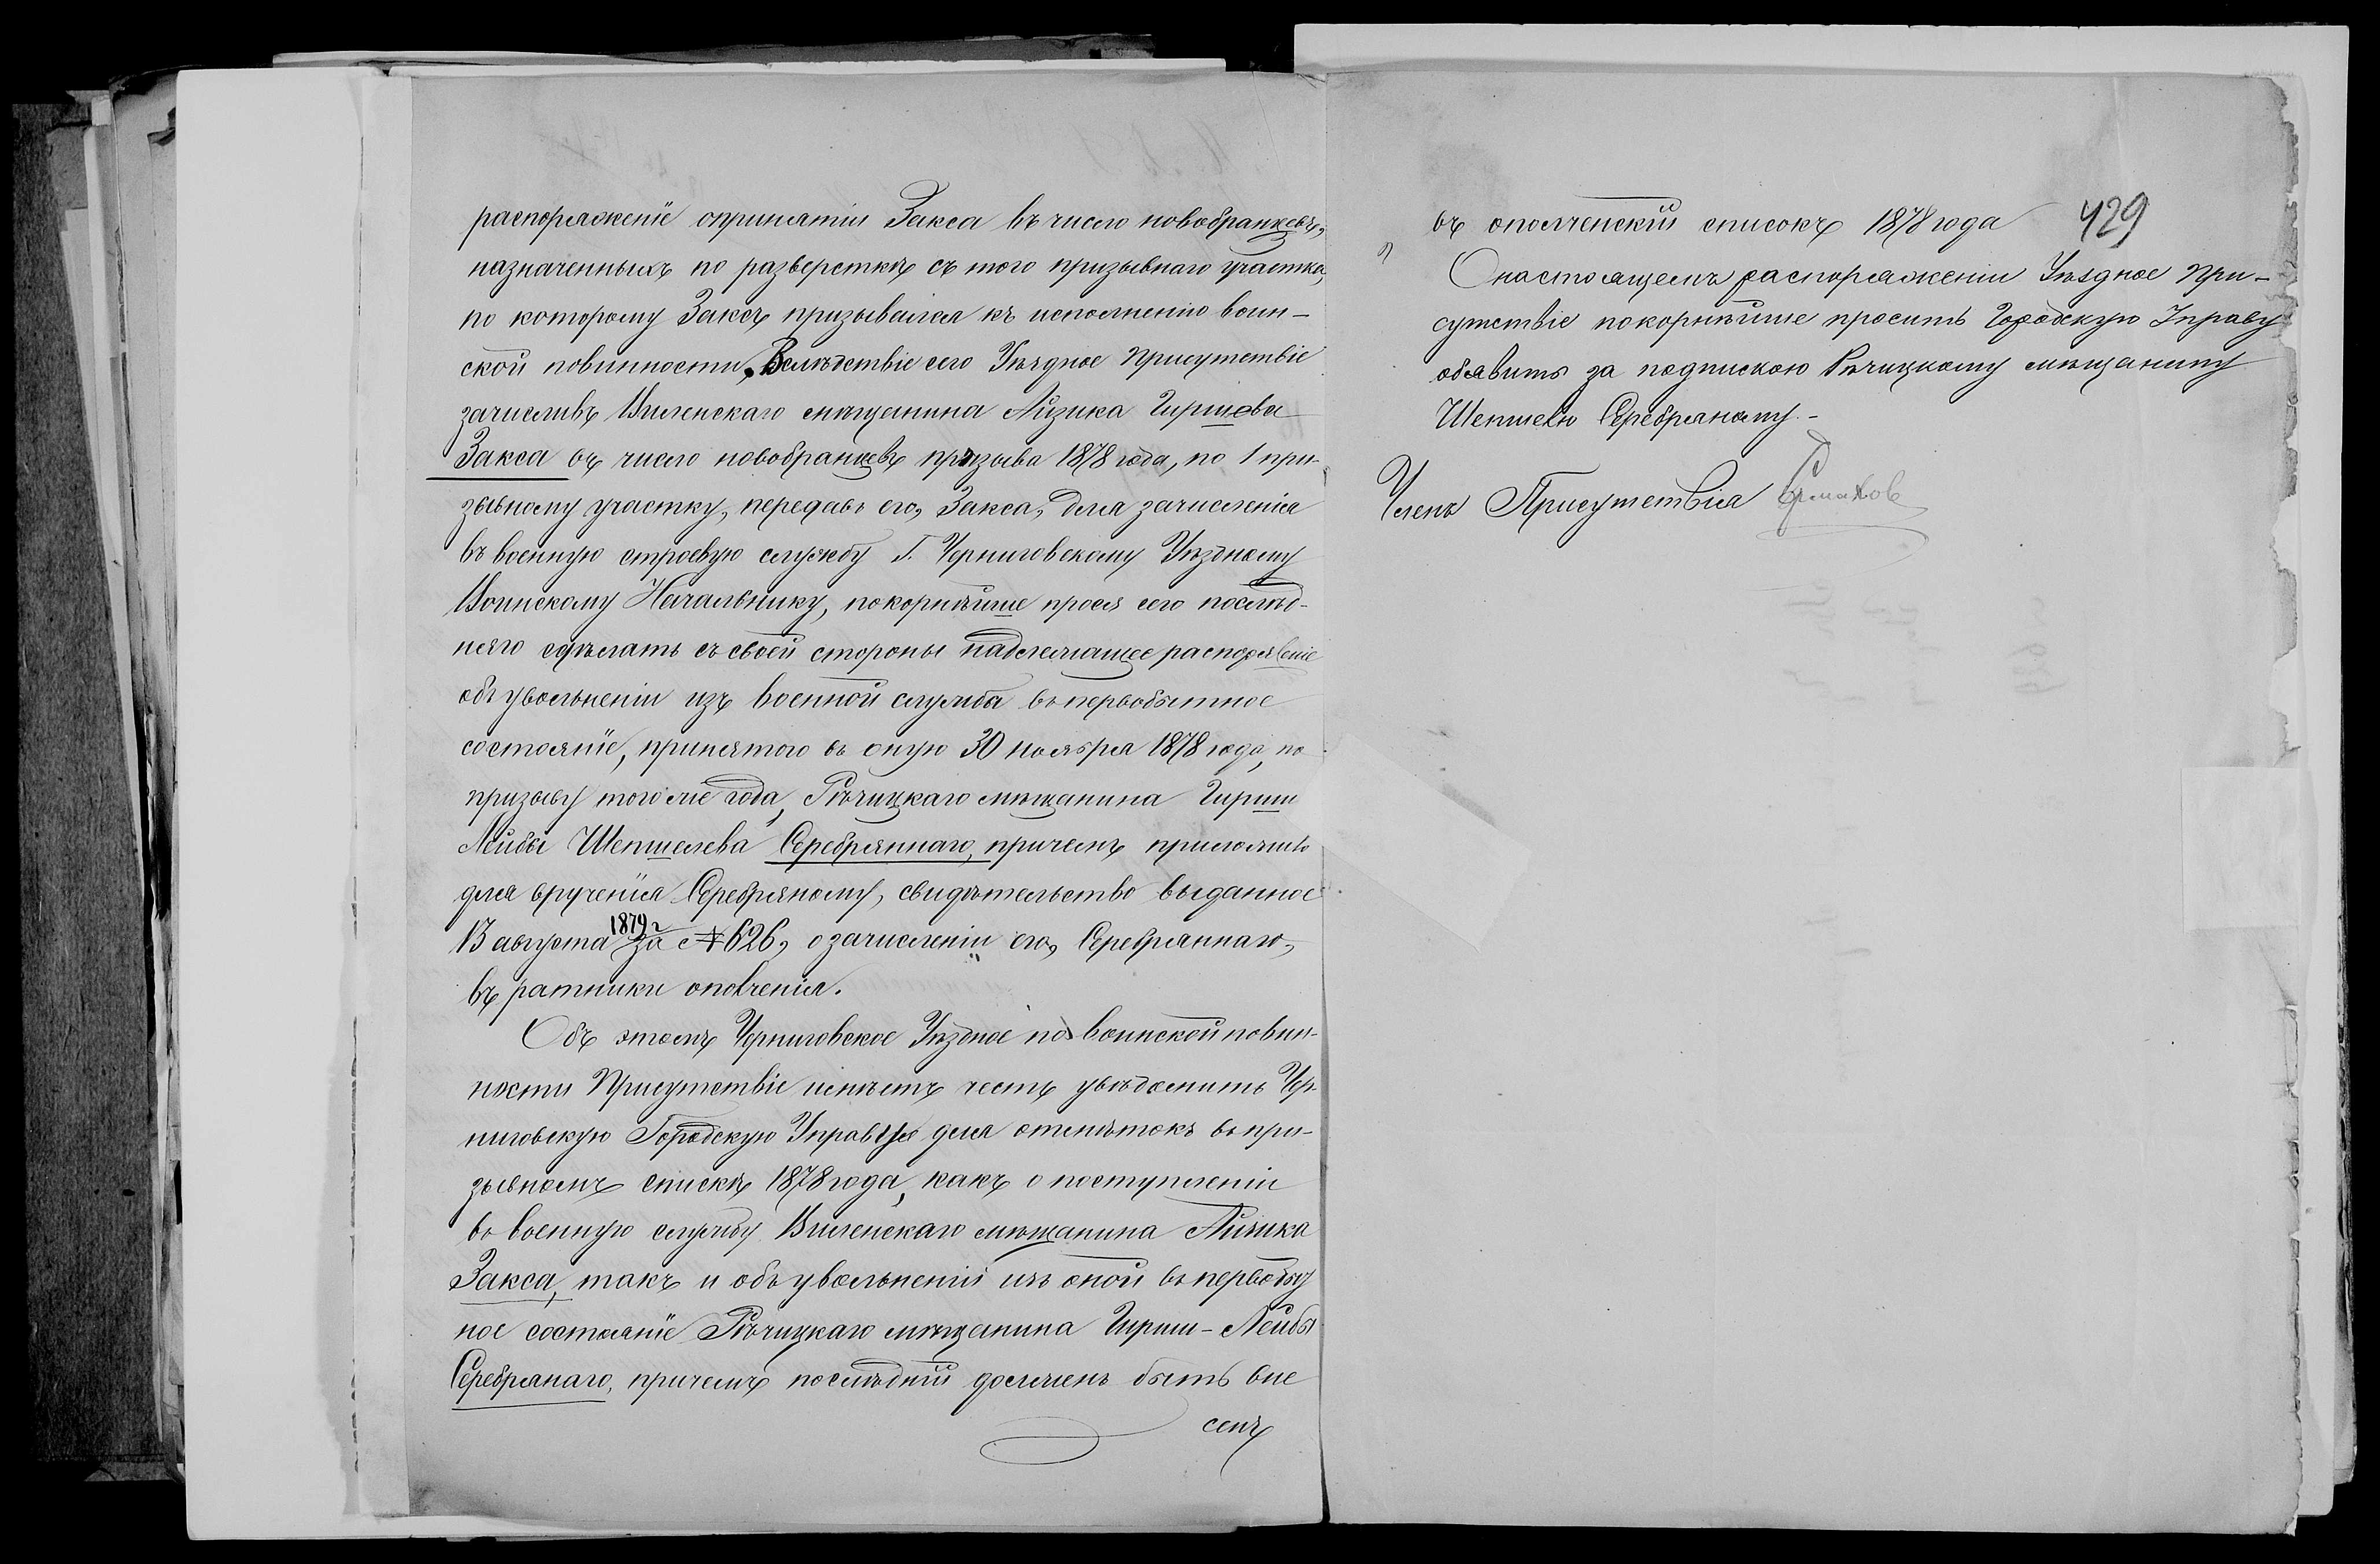 распоряженіе опринятіи Закса въ число новобранцевъ,
назначенныхъ по разверсткѣ съ того призывнаго участка,
по которому Заксъ призывался къ исполненію воин-
ской повинности, Вслѣдствіе сего Уѣздное Присутствіе
зачисливъ Виленскаго мѣщанина Айзика Гиршова
Закса въ число новобранцевъ призыва 1878 года, по 1 при-
зывному участку, передавъ его, Закса, для зачисленія
въ военную строевую службу Г. Черниговскому Уѣздному
Воинскому Начальнику, покорнѣйше прося сего послѣд-
няго сдѣлать съ своей стороны надлежащее распоряженіе
объ увольненіи изъ военной службы въ первобытное
состояніе, принятого въ оную 30 ноября 1878 года, по
призыву того же года, Рѣчицкаго мѣщанина Гирши
Лейбы Шепшелева Серебряннаго, причемъ приложить
для врученія Серебряному, свидѣтельство выданное
13 августа 1879 г за № 626, о зачисленіи его, Серебряннаго,
въ ратники ополченія.
Объ этомъ Черниговское Уѣздное по воинской повин-
ности Присутствіе имѣетъ честь увѣдомить Чер-
ниговскую Городскую Управу для отмѣтокъ въ при-
зывномъ спискѣ 1878 года, какъ о поступленіи
въ военную службу Виленскаго мѣщанина Айзика
Закса, такъ и объ увольненіи изъ оной въ первобыт
ное состояніе Рѣчицкаго мѣщанина Гирши-Лейбы
Серебрянаго, причемъ послѣдній долженъ быть вне
сенъ
429
въ ополченскій списокъ 1878 года
О настоящемъ распоряженіи Уѣздное При-
сутствіе покорнѣйше проситъ Городскую Управу
объявить за подпискою Рѣчицкому мѣщанину
Шепшелю Серебряному.-
Членъ Присутствія